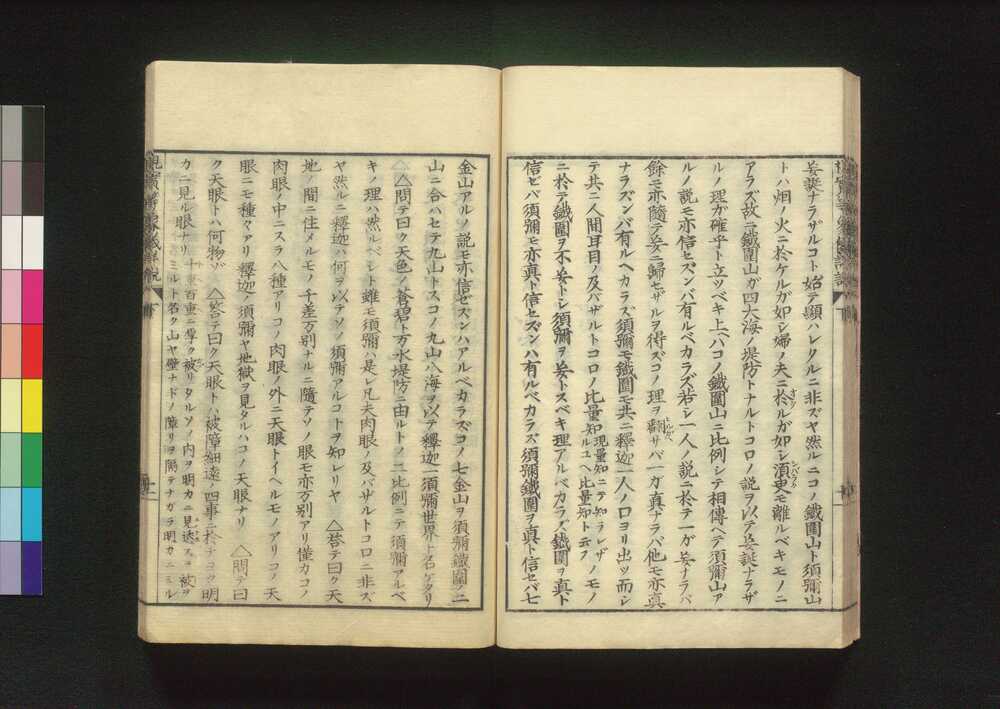 妄誕ナラザルコト始テ顯ハレタルニ非ズヤ然ルニコノ鐵圍山ト須彌山
トハ烟ノ火ニ於ケルガ如シ婦ノ夫ニ於ルガ如シ須臾モ離ルベキモノニ
アラズ故ニ鐵圍山ガ四大海ノ堤防トナルトコロノ説ヲ以テ妄誕ナラザ
ルノ理ガ確乎ト立ツベキ上ハコノ鐵圍山ニ比例シテ相傳ヘテ須彌山ア
ルノ説モ亦信セズンバ有ルベカラズ若シ一人ノ説ニ於テ一ガ妄ナラバ
餘モ亦隨テ妄ニ歸セザルヲ得ズコノ理ヲ翻サバ一ガ真ナラバ他モ亦真
ナラズンバ有ルヘカラズ須彌モ鐵圍モ共ニ釋迦一人ノ口ヨリ出ツ而シ
テ共ニ人間耳目ノ及バザルトコロノ比量知現量知ニテ知ラレザルユヘ比量知ト云フノモノ
ニ於テ鐵圍ヲ不妄トシ須彌ヲ妄トスベキ理アルベカラズ鐵圍ヲ真ト
信ゼバ須彌モ亦真ト信セズンハ有ルベカラズ須彌鐵圍ヲ真ト信セバ七
金山アルノ説モ亦信セズンハアルベカラズコノ七金山ヲ須彌鐵圍ノ二
山ニ合ハセテ九山トスコノ九山八海ヲ以テ釋迦一須彌世界ト名ケタリ
△問テ曰ク天色ノ蒼碧ト万水堤防ニ由ルトノ二比例ニテ須彌アルベ
キノ理ハ然ルベシト雖モ須彌ハ是レ凡夫肉眼ノ及バザルトコロニ非ズ
ヤ然ルニ釋迦ハ何ヲ以テソノ須彌アルコトヲ知レリヤ △答テ曰ク天
地ノ間ニ住メルモノ千差万別ナルニ隨テソノ眼モ亦万別アリ僅カコノ
肉眼ノ中ニスラ八種アリコノ肉眼ノ外ニ天眼トイヘルモノアリコノ天
眼ニモ種々アリ釋迦ノ須彌ヤ地獄ヲ見タルハコノ天眼ナリ △問テ曰
ク天眼トハ何物ゾ △答テ曰ク天眼トハ被障細遠ノ四事ニ於テヨク明
カニ見ル眼ナリ十重百重ニ厚ク被リタルソノ内ヲ明カニ見透スヲ被ヲミルト名ク山ヤ壁ナドノ障リヲ隔テナガラ明カニミル